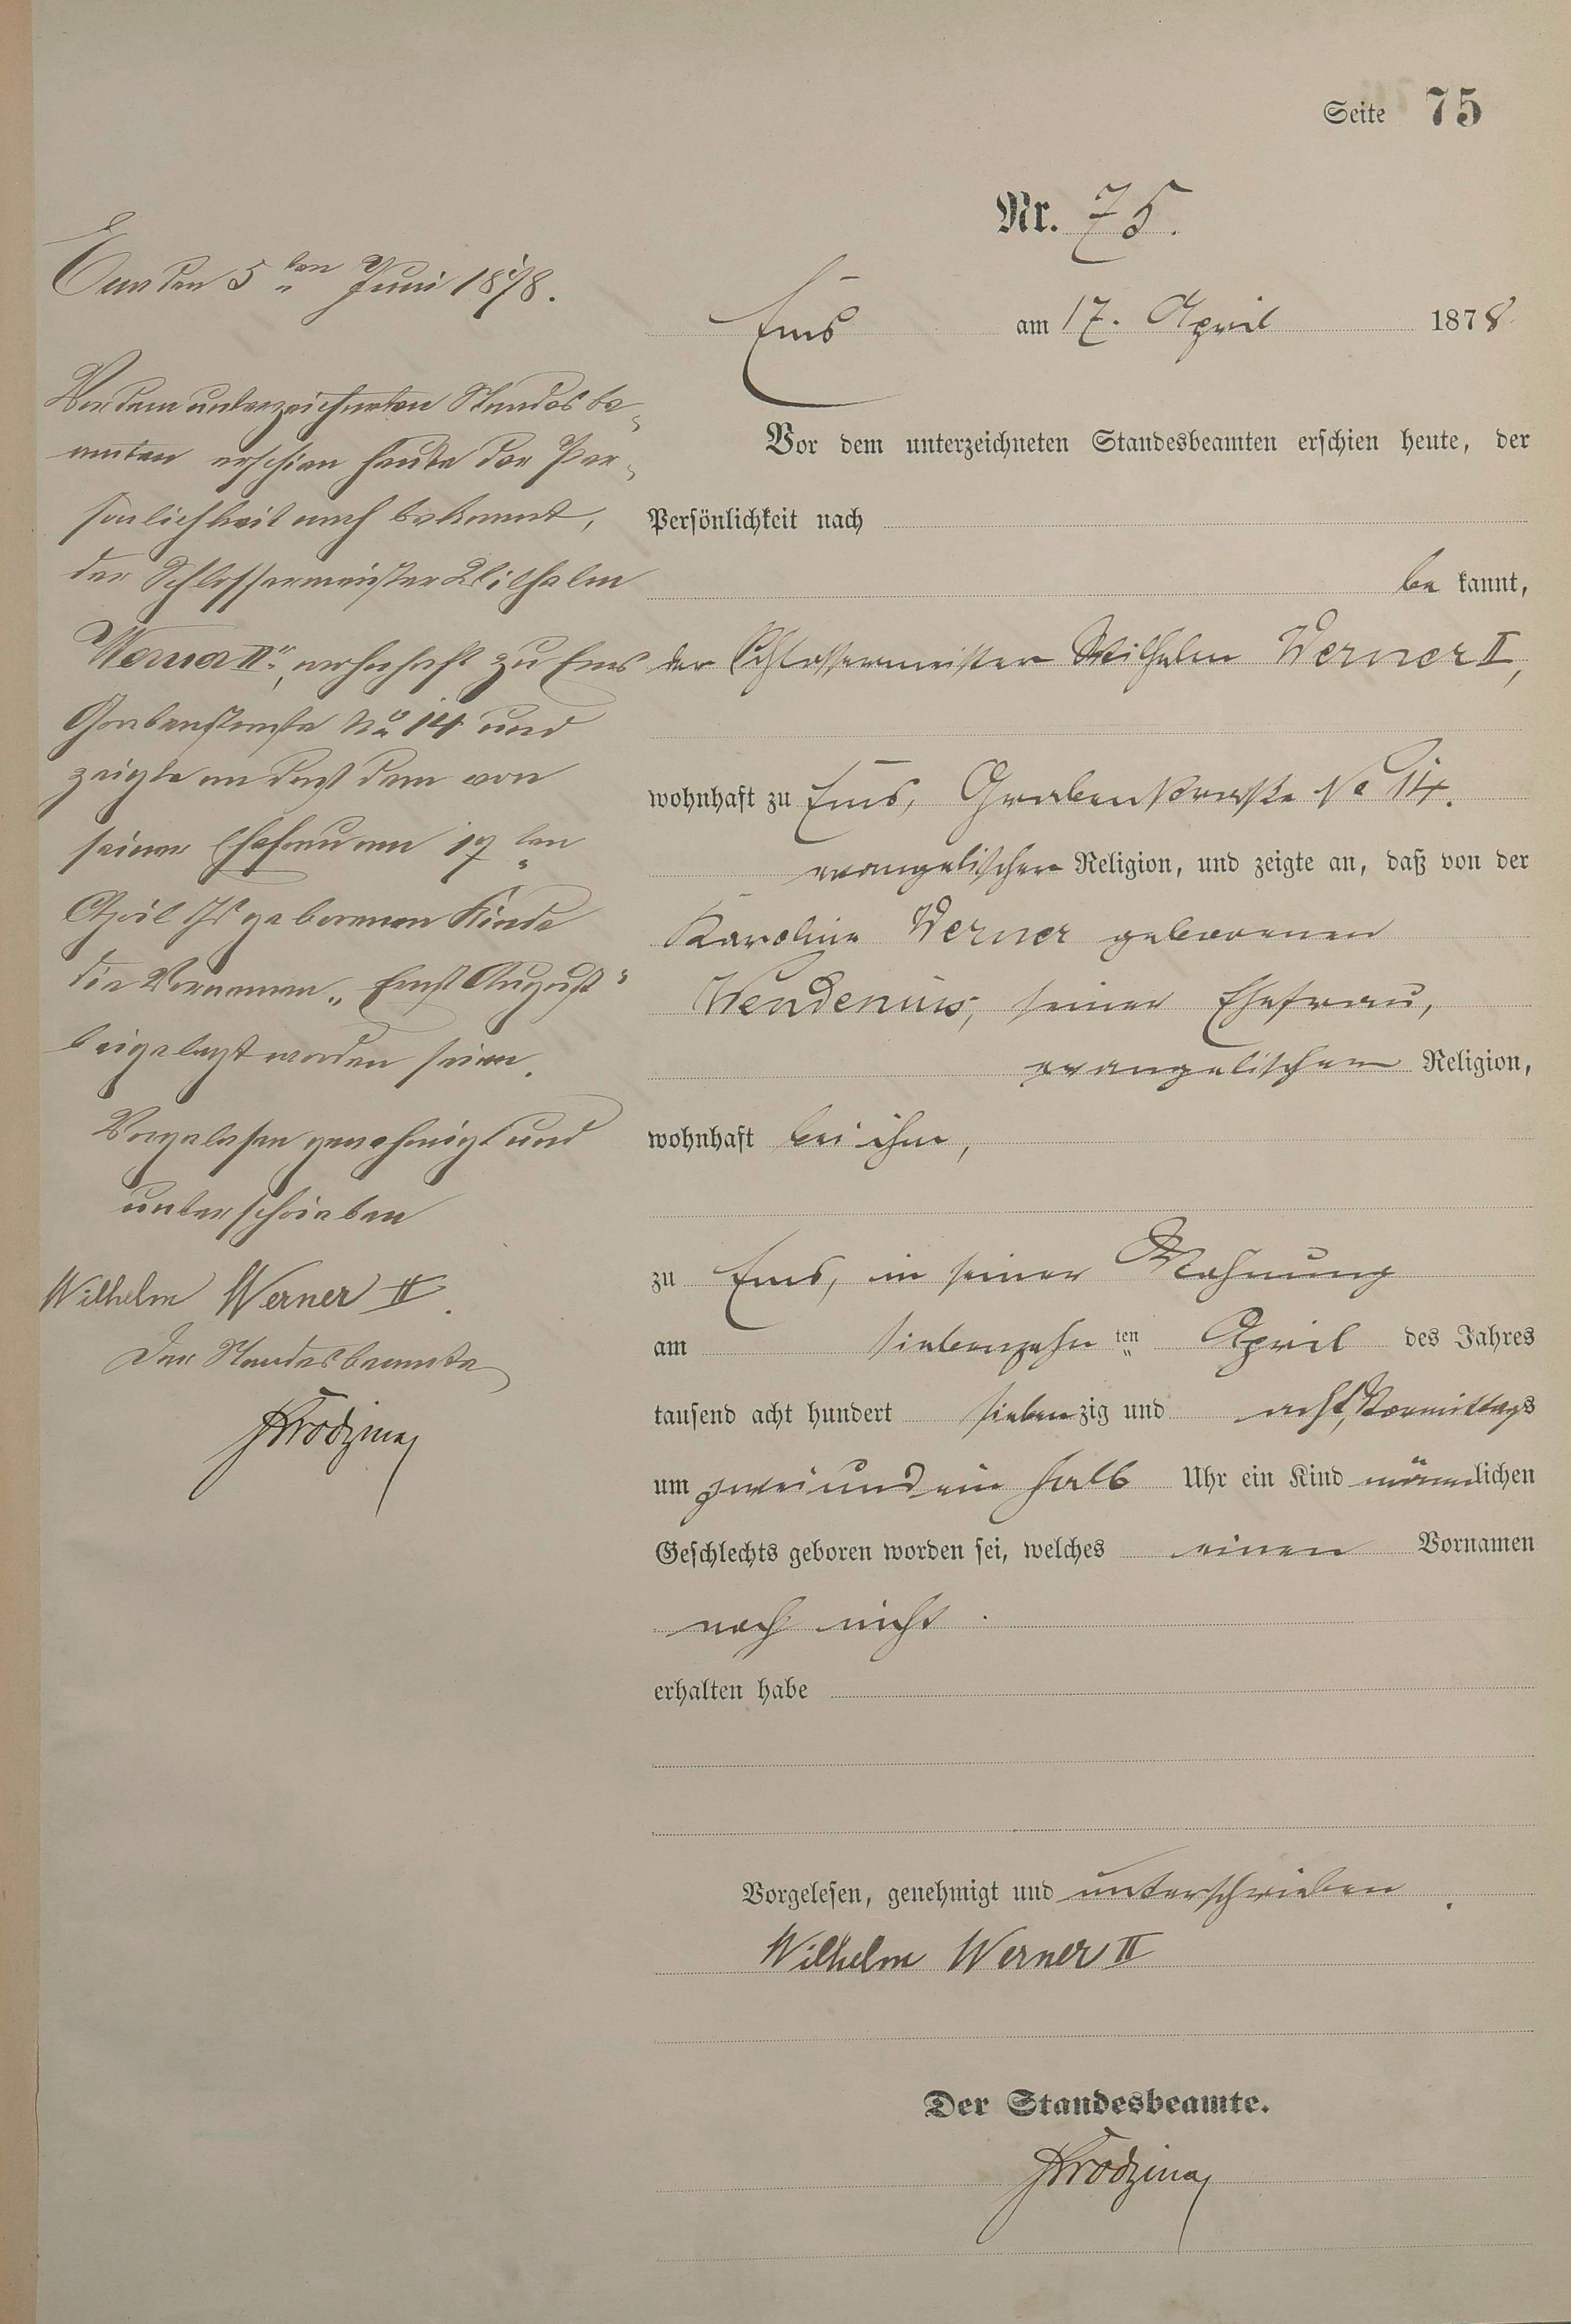 Seite 75
Nr. 75.
Ems am 17. April 1878
Vor dem unterzeichneten Standesbeamten erschien heute, der
Persönlichkeit nach
be kannt,
der Schlossermeister Wilhelm Werner II,
wohnhaft zu Ems, Grabenstraße No 14.
evangelischer Religion, und zeigte an, daß von der
Karoline Werner geborenen
Wendenius, seiner Ehefrau,
evangelischer Religion,
wohnhaft bei ihm,
zu Ems, in seiner Wohnung
am siebenzehn ten April des Jahres
tausend acht hundert siebenzig und acht, Vormittags
um zwei und ein halb Uhr ein Kind männlichen
Geschlechts geboren worden sei, welches einen Vornamen
noch nicht.
erhalten habe
Vorgelesen, genehmigt und unterschrieben.
Wilhelm Werner II
Der Standesbeamte.
Ems den 5ten Juni 1878.
Vor dem unterzeichneten Standesbe-
amten erschien heute der Per-
sönlichkeit nach bekannt,
der Schlossermeister Wilhelm
Werner II, wohnhaft zu Ems
Grabenstraße No 14 und
zeigte an daß dem von
seiner Ehefrau am 17ten
April Js geborenen Kinde
die Vornamen „Ernst August"
beigelegt worden seien.
Vorgelesen genehmigt und
unterschrieben
Wilhelm Werner II.
Der Standesbeamte